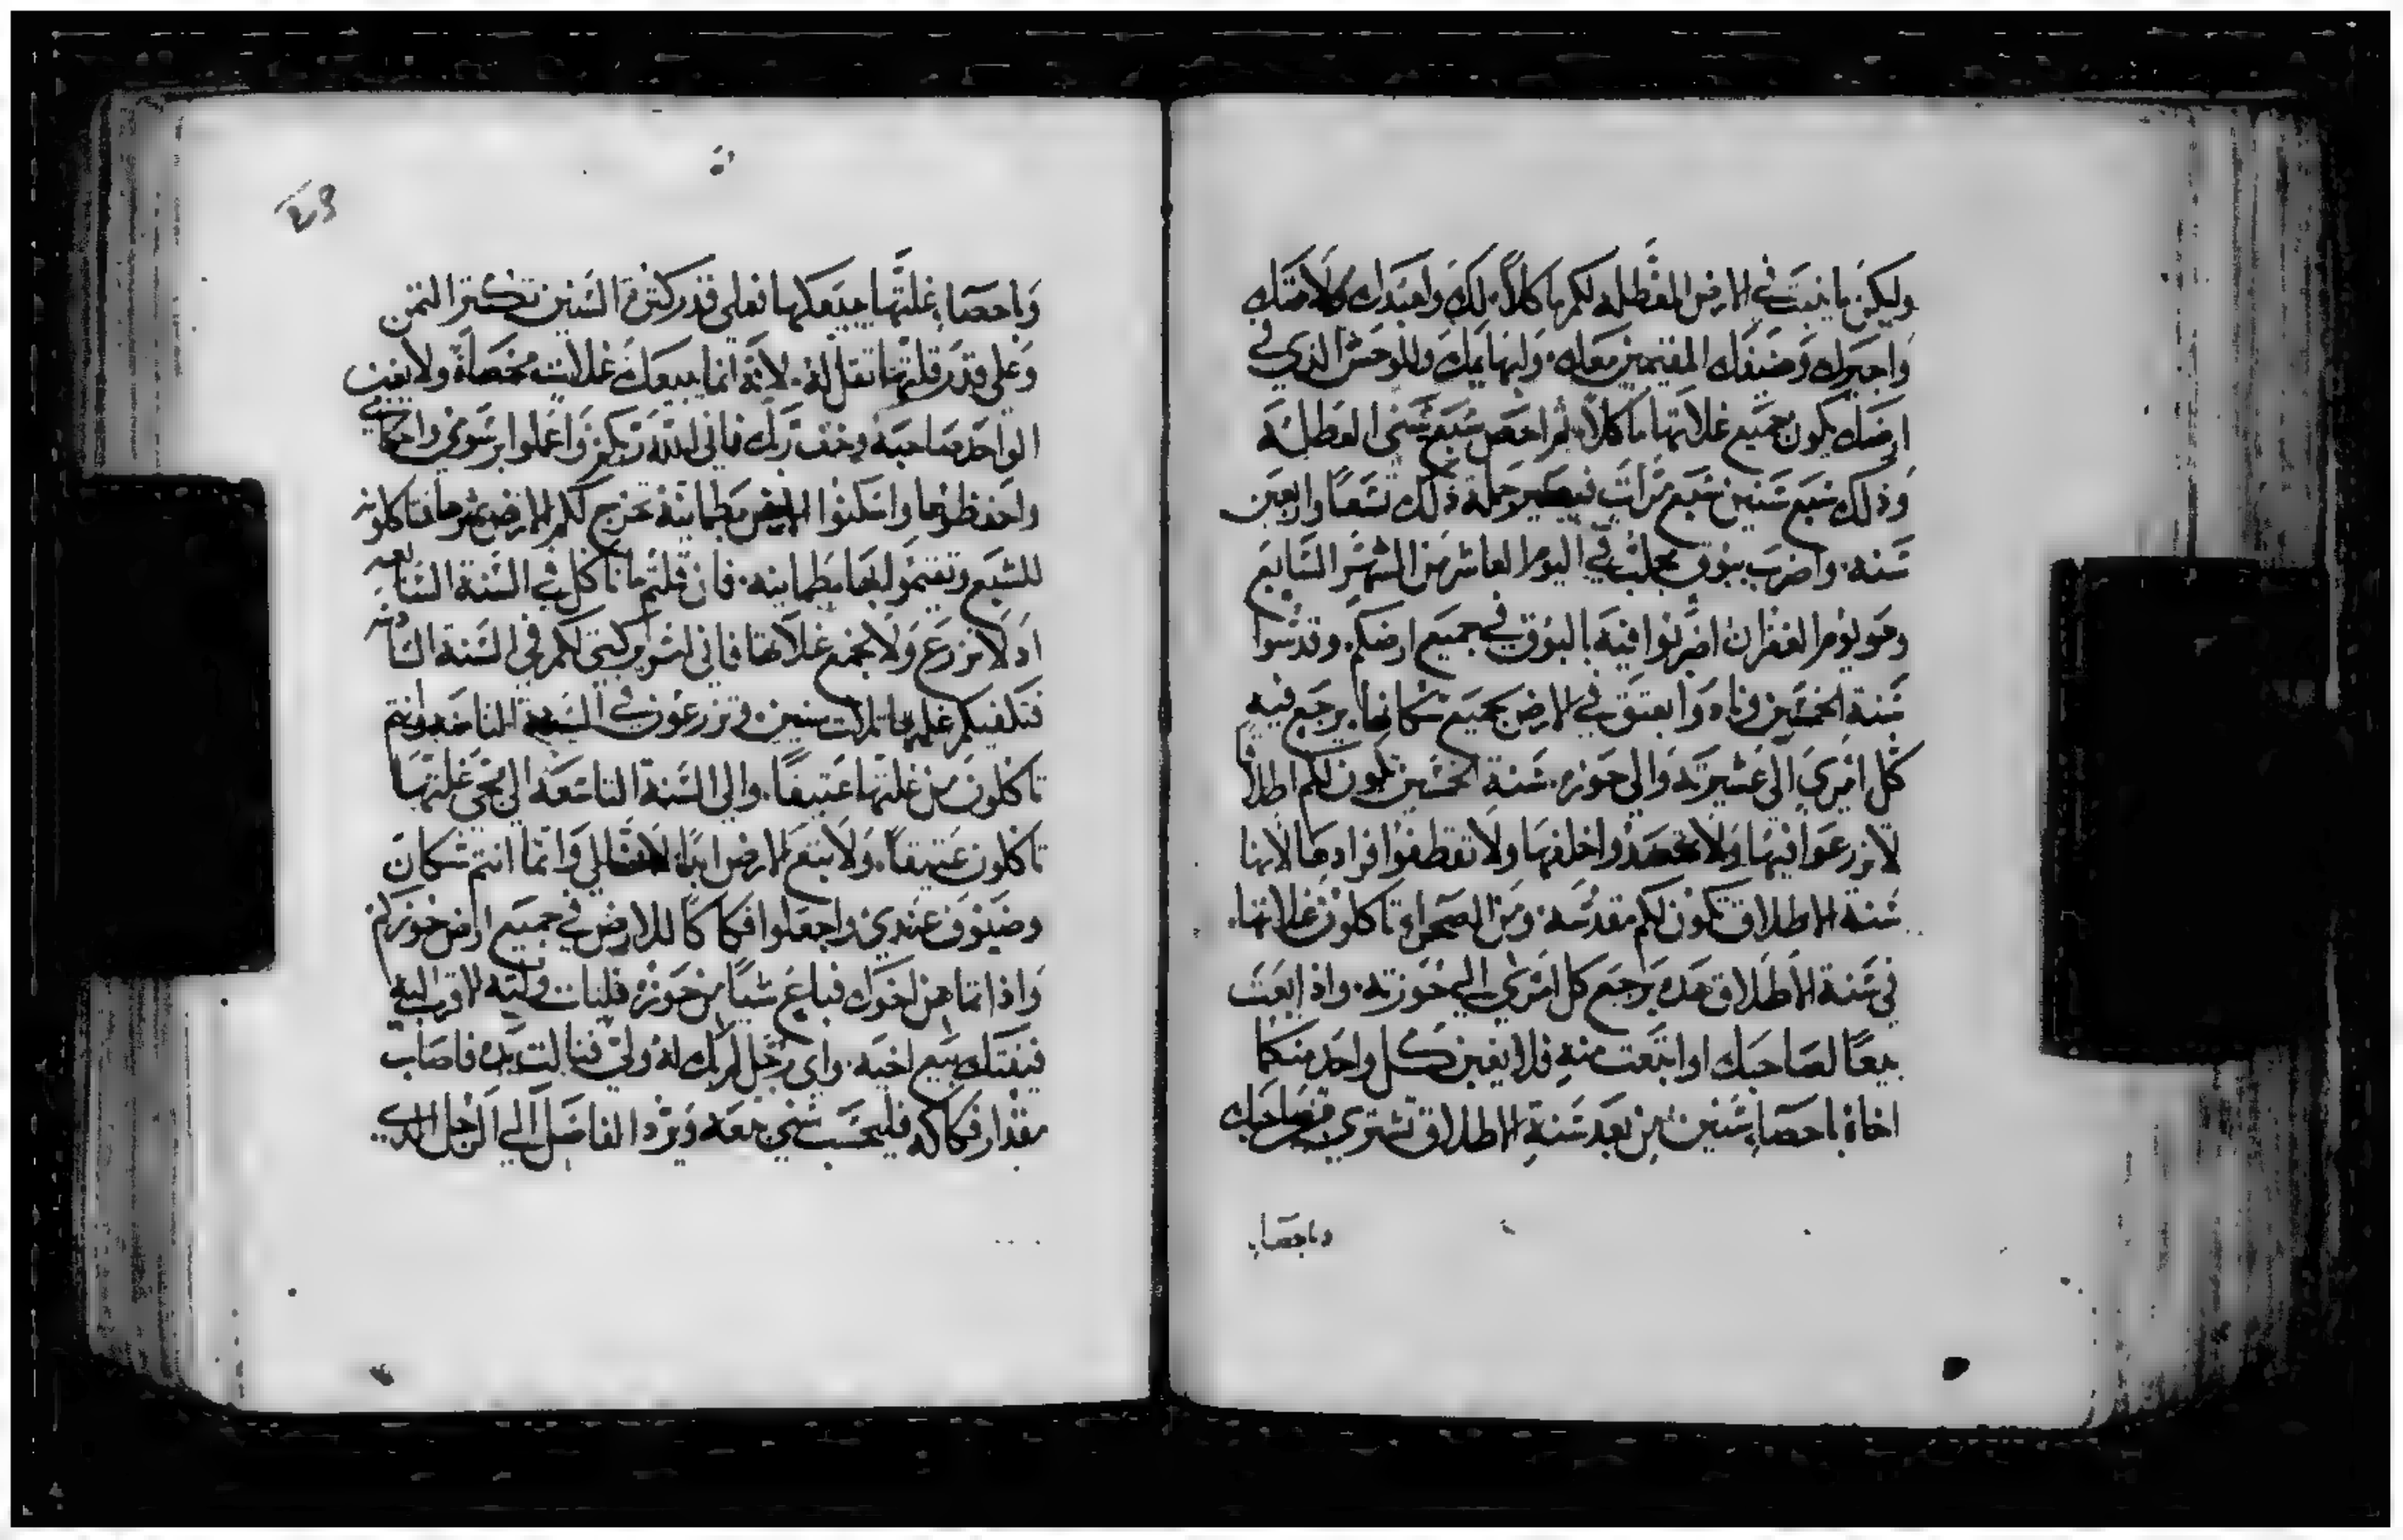 وليكن ما ينبت في الارض المعطله لكم ماكلاً. لك ولعبدك ولامتك
واجيرك وضيفك المقيمين معك. ولبهايمك وللوحش الذي في
ارضك يكون جميع غلاتها ماكلاً. ثم احص سبع سني العطلة
وذلك سبع سنين سبع مرات فيصير جملة ذلك تسعاً واربعين
سنه. واضرب ببوق مجلب في اليوم العاشر من الشهر السابع
وهو يوم الغفران اضربوا فيه بالبوق في جميع ارضكم. وقدسوا
سنة الخمسين وناد وا بعتق في الارض بجميع سكانها يرجع فيه
كل امري الى عشيرته والي حوزه. سنة الخمسين تكون لكم اطلاقاً
لا تزرعوا فيها ولا تحصدوا خلفها ولا تقطفوا فرادها لانها
سنة الاطلاق تكون لكم مقدسه. ومن الصحراء تاكلون غلاتها.
في سنة الاطلاق هذه يرجع كل امري الي حوزته. واذا بعت
بيعاً لصاحبك او ابتعت منه فلا يغبن كل واحد منكما
اخاه باحصاء سنين من بعد سنة الاطلاق تشتري من صاحبك
وباحصاء
وباحصاء غلتها يبيعكها فعلي قدر كثرة السنين تكثر الثمن
وعلي قدر قلتها تقل له. لانه انما يبيعك غلات محصلة ولا يغبن
الواحد صاحبه وخف ربك فاني الله ربكم واعملوا برسومي واحكامي
واحفظوها واسكنوا الارض بطمانينة تخرج لكم الارض ثمرها فتاكلونه
للشبع وتقيمو ليها بطمانينه. فان قلتم ما ناكل في السنة السابعه
اذ لا نزرع ولا نجمع غلاتها فاني اشير بركتي لكم في السنة السادسه
فتكفيكم غلتها ثلاث سنين وتزرعون في السنة الثامنه وانتم
تاكلون من غلتها عتيقاً. والي السنة التاسعه الي مجي غلتها
تاكلون عتيقاً. ولا تبتع الارض ابداً لانها لي وانما انتم سكان
وضيوف عندي واجعلوا فكاكاً للارض في جميع ارض حوزكم
واذا تماهن اخوك فباع شياً من حوزه فليات وليه الاقرب اليه
فيفتك بيع اخيه. واي رجل لم يك له ولي فنالت يده فاصاب
مقدار فكاكه فليحسب سني بيعه ويرد الفاضل الي الرجل الذي